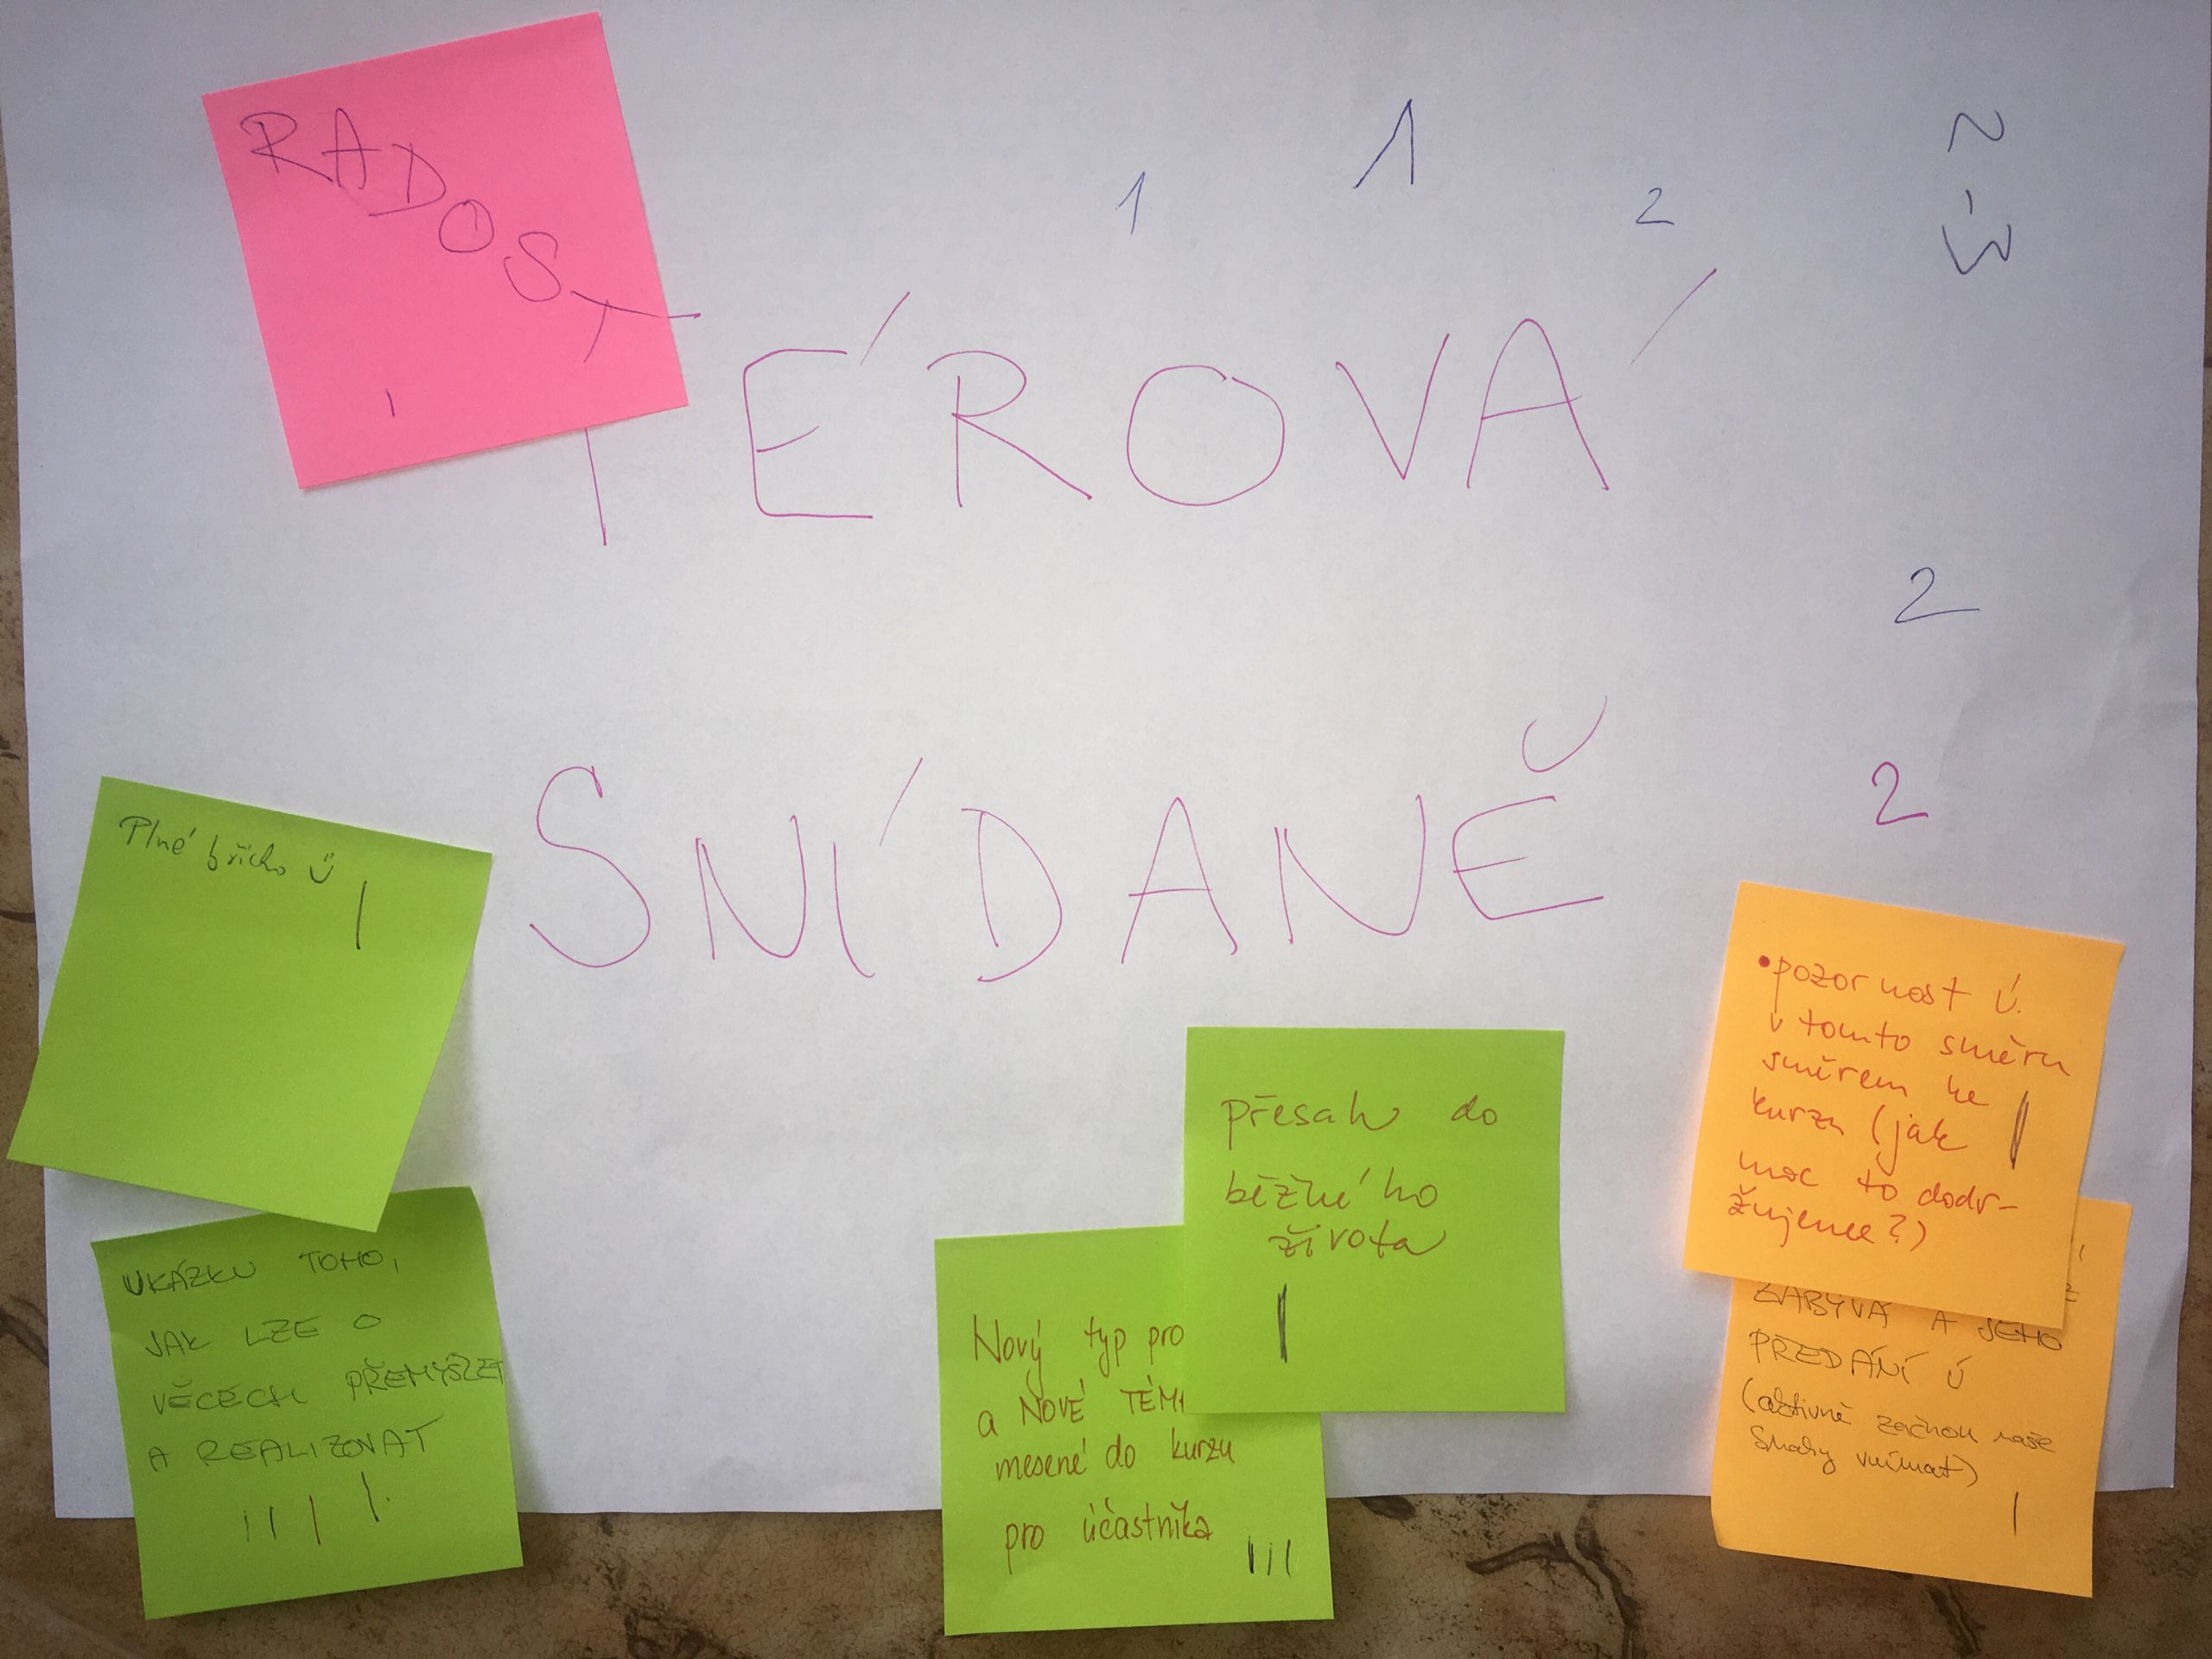 RADOST
1
1
2
2
2-3
TÉROVÁ
2
SNÍDANĚ
2
Plné břicho Ü
UKÁZKU TOHO,
JAK LZE O
VĚCECH PŘEMÝŠLET
A REALIZOVAT
Nový typ pro
a NOVÉ TÉM
mesené do kurzu
pro účastníka
přesah do
běžného
života
• pozornost Ú.
v tomto směru
směrem ke
kurzu (jak
moc to dodr-
žujeme?)
ZABÝVÁ A JEHO
PŘEDÁNÍ Ú
(aktivně začnou naše
snahy vnímat)